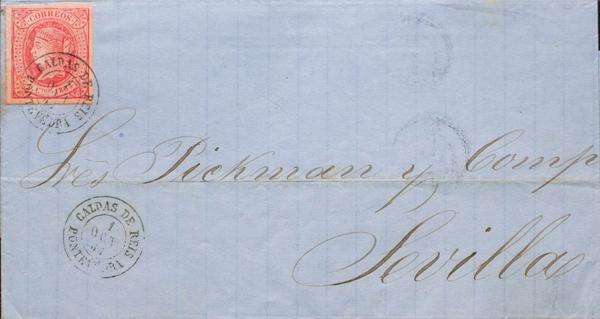 CORREOS
CALDAS DE REIS
PONTEVEDRA
Srēs Pickman y Comp
Sevilla
CALDAS DE REIS
1
OCT
64
PONTEVEDRA